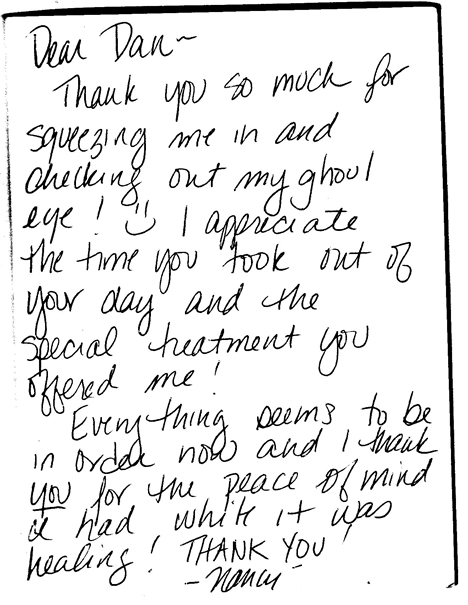 Dear Dan~
Thank you so much for
squeezing me in and
checking out my ghoul
eye! I appreciate
the time you took out of
your day and the
special treatment you
offered me!
Everything seems to be
in order now and I thank
you for the peace of mind
I had while it was
healing! THANK YOU!
-Nancy-